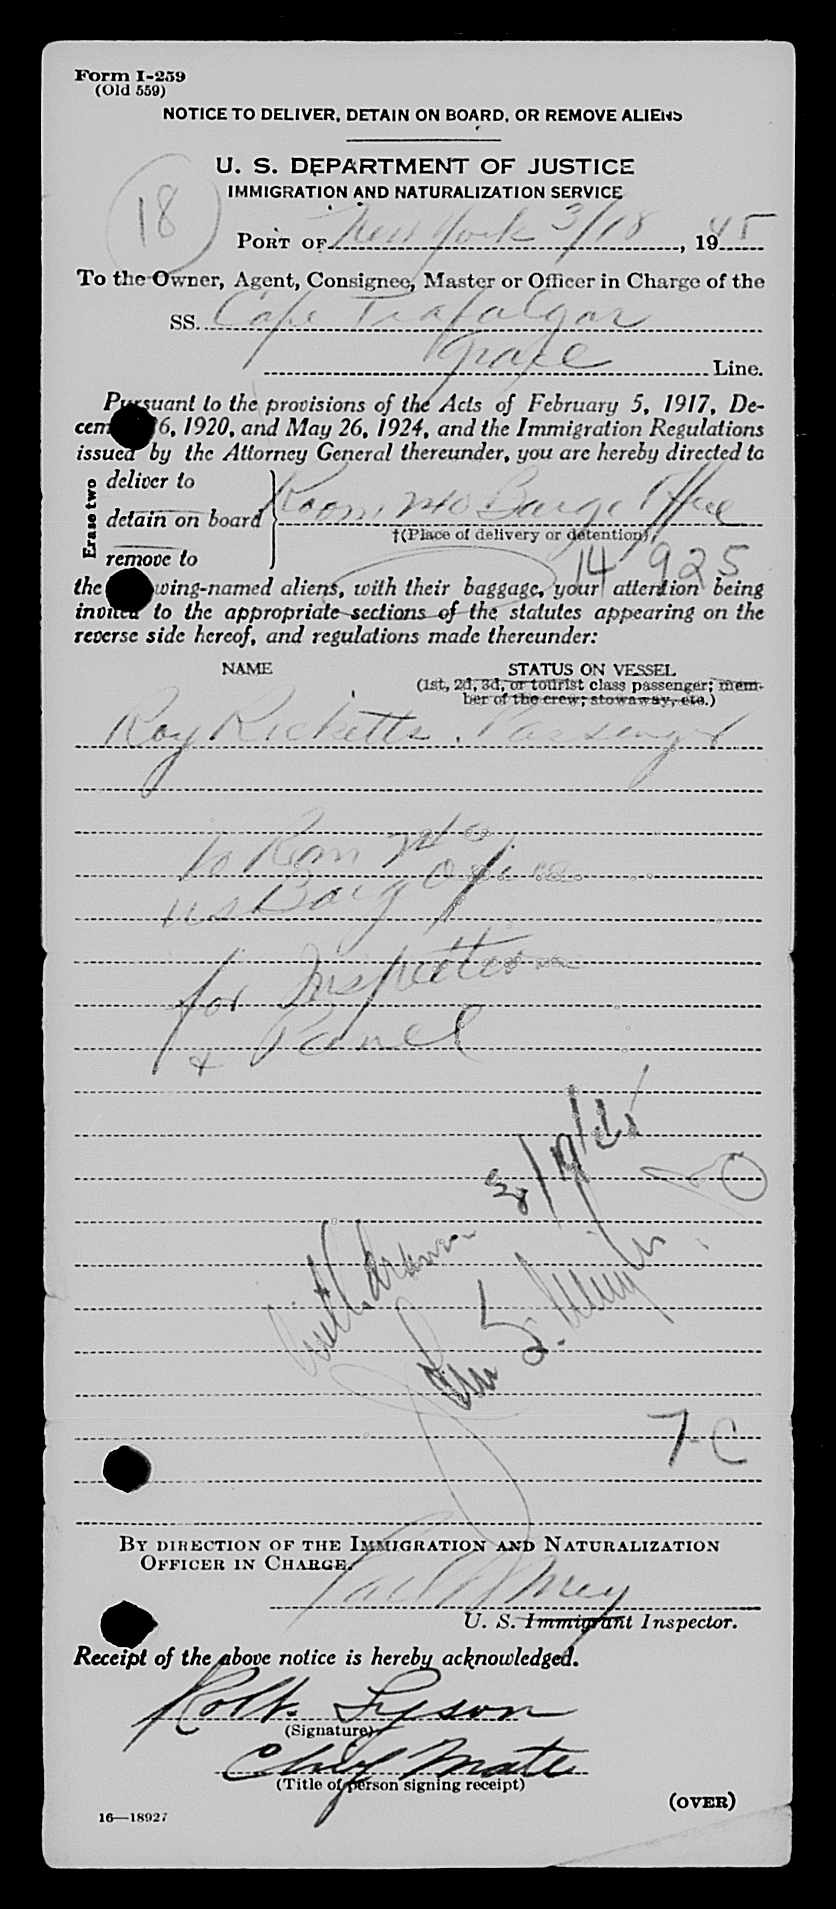 Form I-259
(Old 559)
NOTICE TO DELIVER, DETAIN ON BOARD, OR REMOVE ALIENS
U. S. DEPARTMENT OF JUSTICE
IMMIGRATION AND NATURALIZATION SERVICE
18
PORT OF New York 3/18, 1945
To the Owner, Agent, Consignee, Master or Officer in Charge of the
SS. Cape Trafalgar
Grace Line.
Pursuant to the provisions of the Acts of February 5, 1917, De-
cem 6, 1920, and May 26, 1924, and the Immigration Regulations
issued by the Attorney General thereunder, you are hereby directed to
Erase two
deliver to
detain on board
remove to
Room Barge Office
†(Place of delivery or detention)
14 925
the wing-named aliens, with their baggage, your attention being
invited to the appropriate sections of the statutes appearing on the
reverse side hereof, and regulations made thereunder:
NAME STATUS ON VESSEL
(1st, 2d, 3d, or tourist class passenger; mem-
ber of the crew; stowaway, etc.)
Roy Ricketts. Passenger
to Room
US Barg Office
for Inspection
+
withdrawn
7-C
BY DIRECTION OF THE IMMIGRATION AND NATURALIZATION
OFFICER IN CHARGE.
U. S. Immigrant Inspector.
Receipt of the above notice is hereby acknowledged.
Robt. Lyson
(Signature)
Chief Mate
(Title of person signing receipt)
(OVER)
16—18927